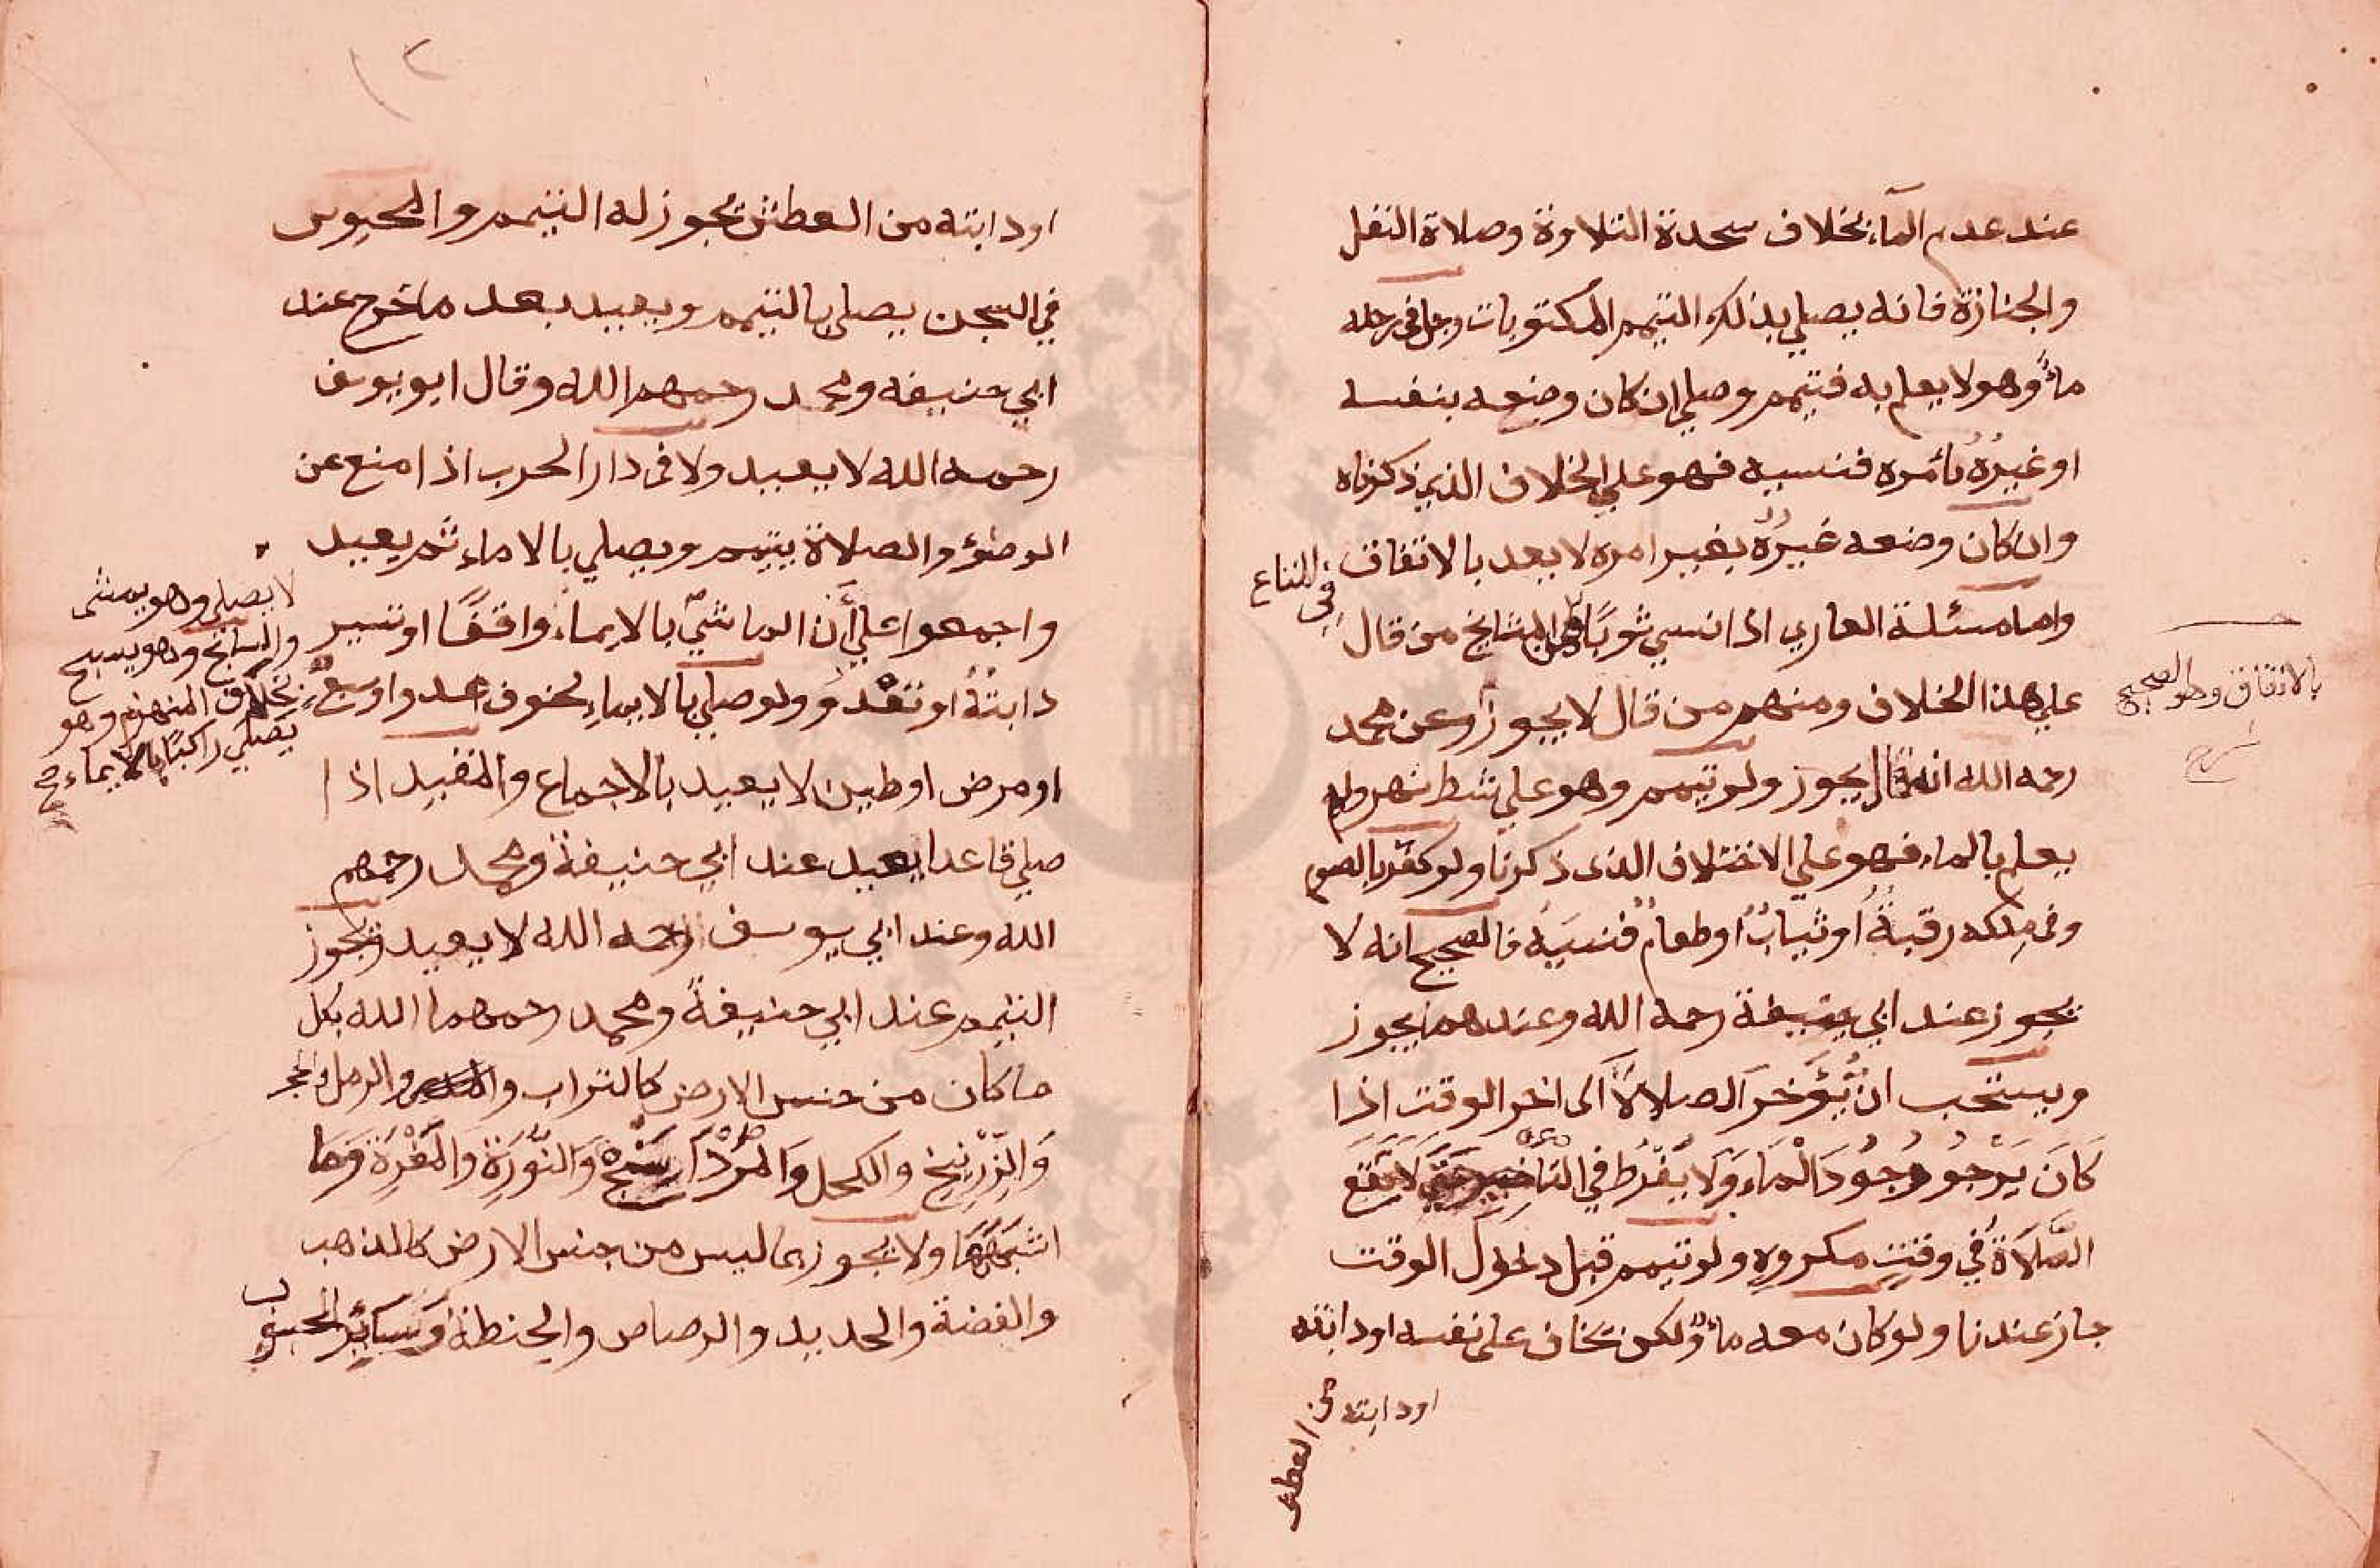 عند عدم المآء بخلاف سجدة التلاوة وصلاة النفل
والجنازة فانه يصلي بذلك التيمم المكتوبات رجل في رحله
ماءٌ وهو لا يعلم به فتيمم وصلي ان كان وضعه بنفسه
او غيرُهُ بأمره فنسيه فهو علي الخلاف الذي ذكرناه
وان كان وضعه غيرُهُ بغير امره لا يعد بالاتفاق
واما مسئلة العاري اذا نسي ثوبًا المشايخ من قال
علي هذا الخلاف ومنهم من قال لا يجوز وعن محمد
بالاتفاق وهو الصحيح
شرح
رحمه الله انه قال يجوز ولو تيمم وهو علي شط نهر ولم
يعلم بالماء فهو علي الاختلاف الذي ذكرنا ولو كفّر بالصوم
وفي مِلكه رقبةٌ او ثيابٌ او طعامٌ فنسيَه فالصحيح انه لا
يجوز عند ابي حنيفة رحمه الله وعندهما يجوز
ويستحب ان يُؤَخرَ الصلاةَ الى اخر الوقت اذا
كَانَ يَرْجُو وُجُودَ الْمَاءِ وَلَا يُفَرّطُ في التأخير حتي لا تقع
الصَّلَاةُ في وقتٍ مكروهٍ ولو تيمم قبل دخول الوقت
جاز عندنا ولو كان معه ماءٌ ولكن يخاف على نفسه او دابته
او دابته من العطش
٢
او دابته من العطش يجوز له التيمم والمحبوس
في السجن يصلي بالتيمم ويعيد بعد ما خرج عند
ابي حنيفه ومحمد رحمهم الله وقال ابو يوسف
رحمه الله لا يعيد ولا في دار الحرب اذا منع عن
الوضؤ والصلاة يتيمم ويصلي بالاماء ثم يعيد
واجمعوا علي أن الماشيَ بالايماء واقفًا او تسير
دابتُهُ او تعْدُو ولو صلي بالايماءِ لخوف عدو او سبعٍ
لا يصلي وهو يمشى
والسابح وهو يسبح
بخلاف المنهزم وهو
يصلي راكبًا بالايماء صح
او مرض او طين لا يعيد بالاجماع والمقيد اذا
صلي قاعدا يعيد عند ابي حنيفة ومحمد رحمهم
الله وعند ابي يوسف رحمه الله لا يعيد ويجوز
التيمم عند ابي حنيفةَ ومحمد رحمهما الله بكل
ما كان من جنس الارض كالتراب والرمل والحجر
وَالزِّرْنيخ والكحل وَالْمُرْدَارسَنْجِ وَالنُّورَةِ وَالْمَغْرَةِ وَمَا
اشبَهَهَا ولا يجوز بما ليس من جنس الارض كالذهب
والفضة والحديد والرصاص والحنطة وَسَائِرِ الحبوب